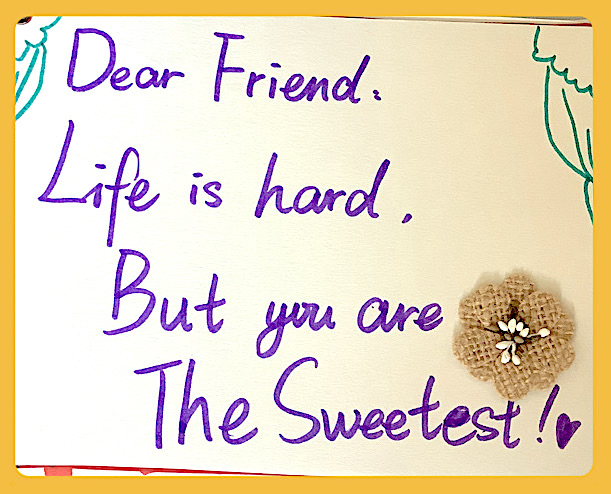 Dear Friend:
Life is hard,
But you are
The Sweetest!